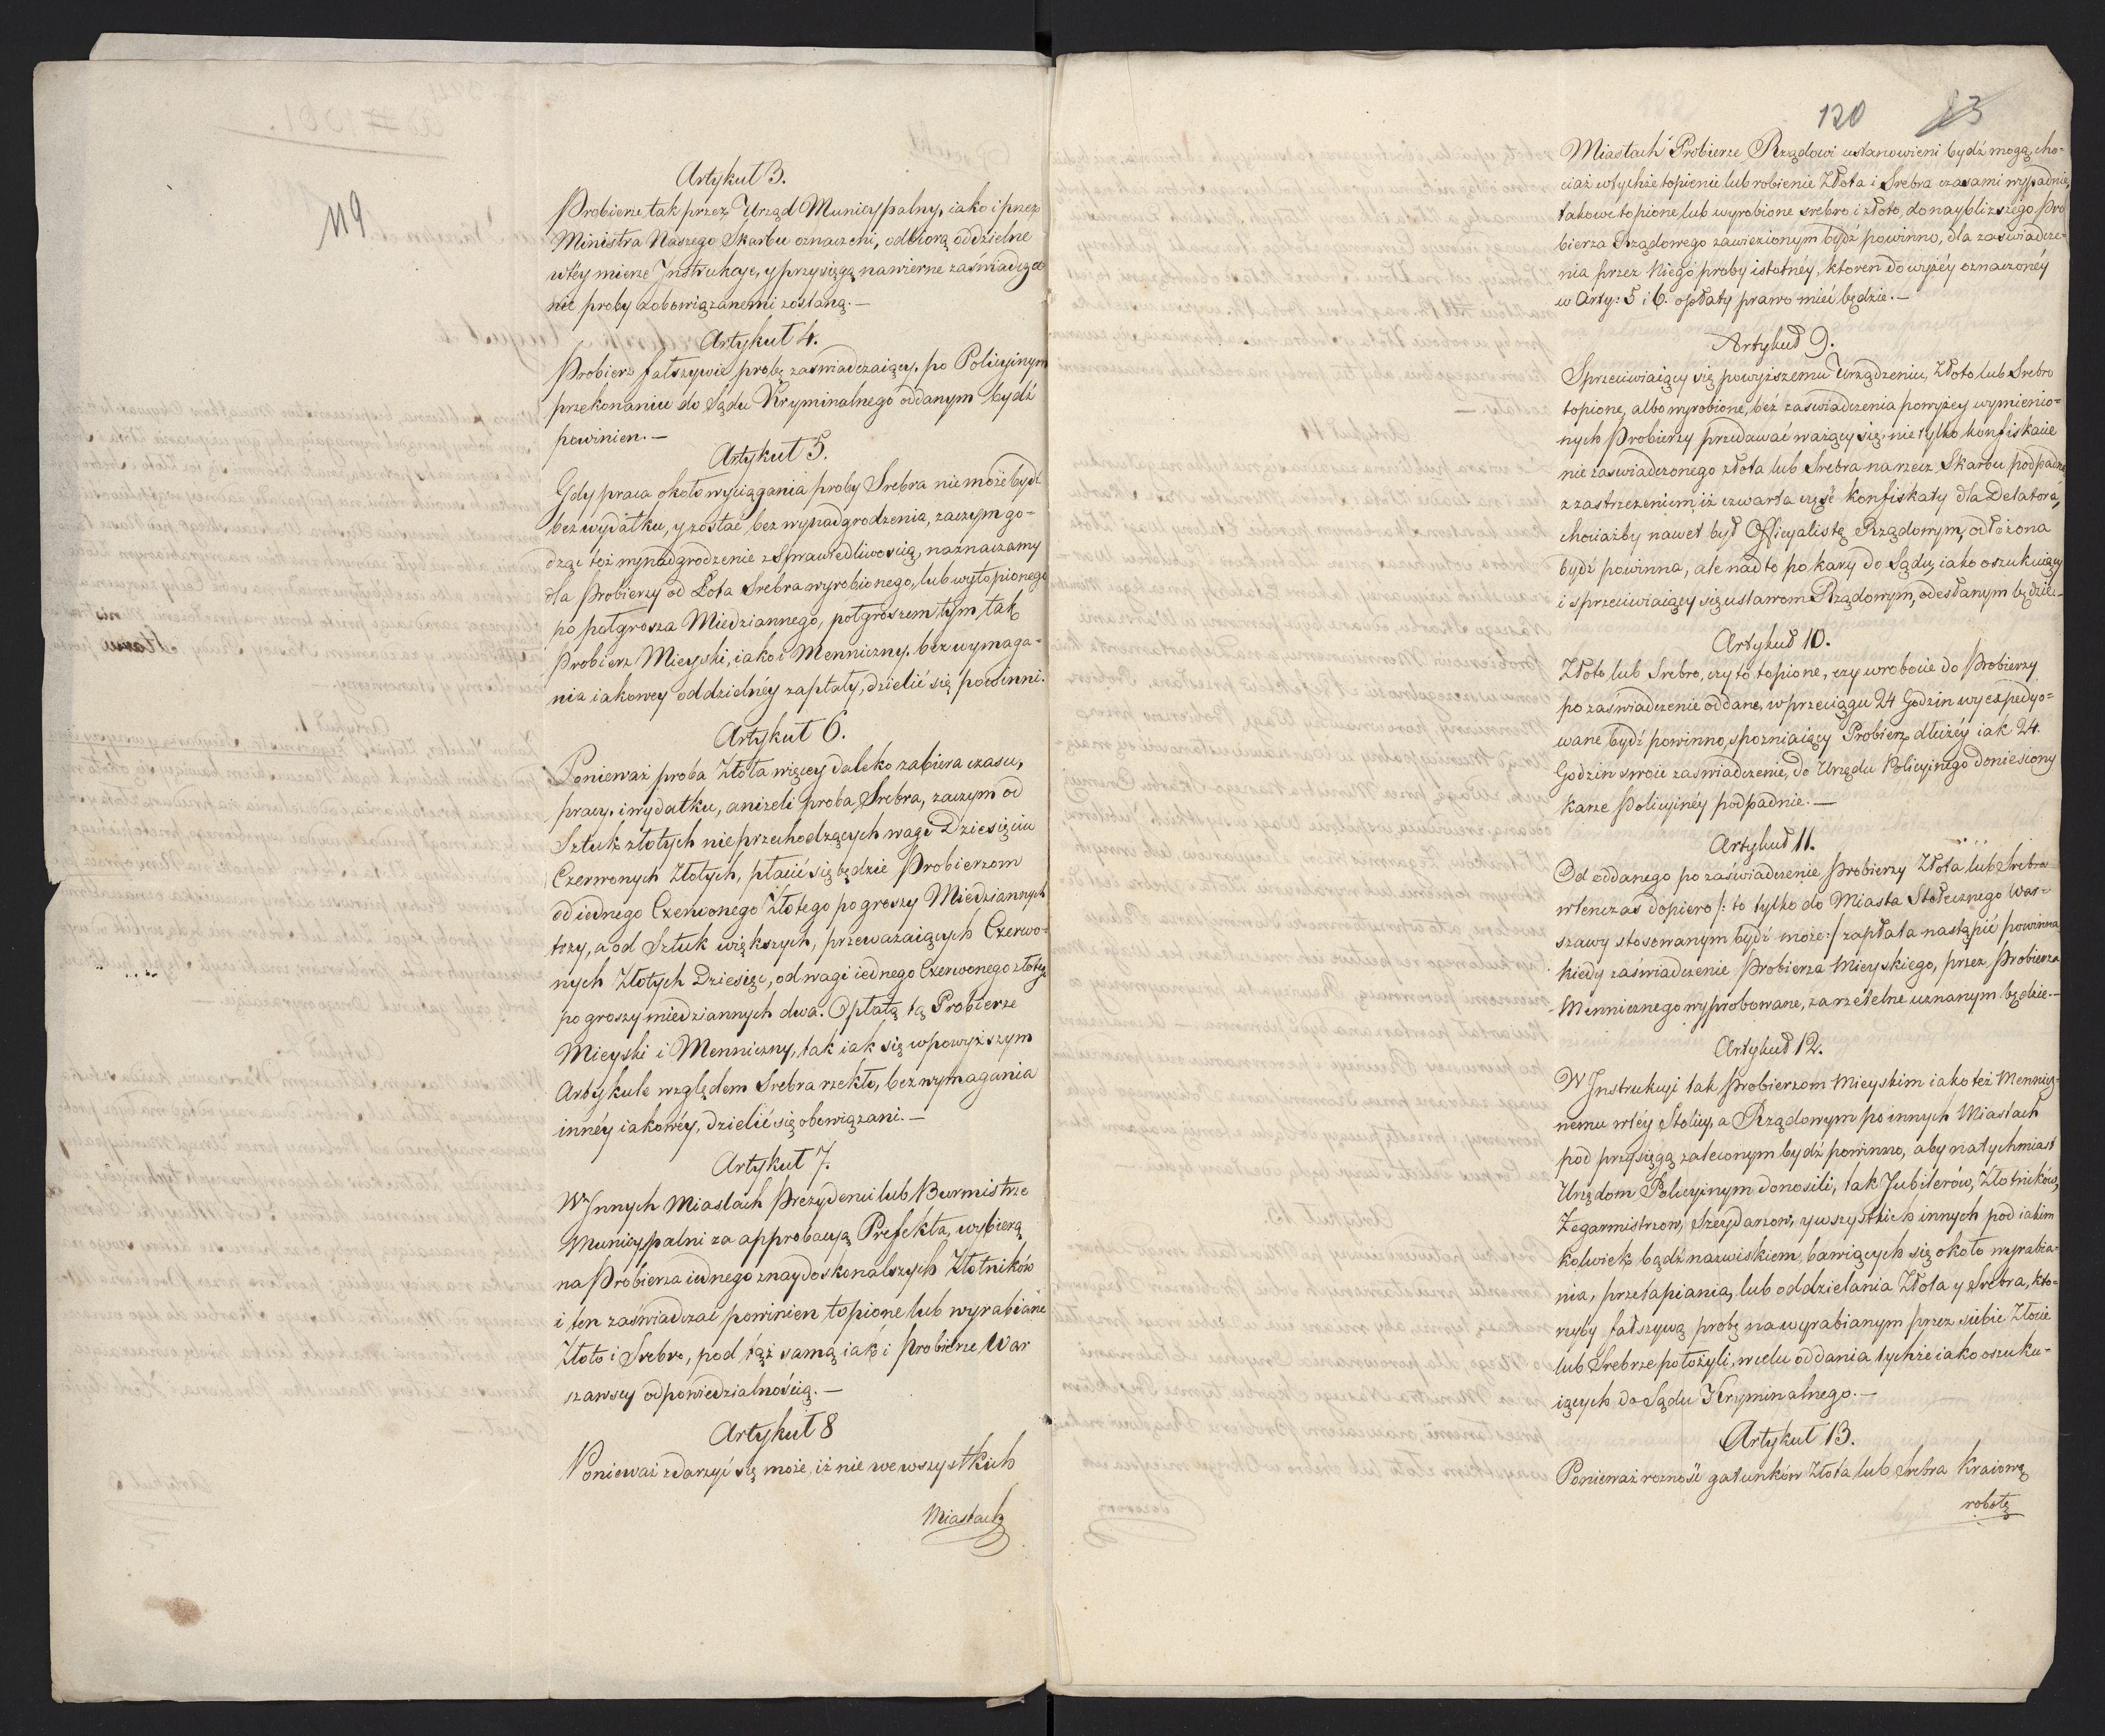 119
Artykuł 3.
Probierze tak przez Urząd Municypalny, iako i przez
Ministra Naszego Skarbu oznaczeni, odbiorą oddzielne
w téy mierze Instrukcye, y przysięgą na wierne zaświadcze
nie proby zobowiązanemi zostaną.—
Artykuł 4.
Probierz fałszywie probę zaświadczaiący, po Policyinym
przekonaniu do Sądu Kryminalnego oddanym bydź
powinien.—
Artykuł 5.
Gdy praca około wyciągania proby Srebra nie może bydź
bez wydatku, y zostać bez wynadgrodzenia, zaczym go-
dząc też wynadgrodzenie z Sprawiedliwością, naznaczamy
dla Probierzy od Łota Srebra wyrobionego, lub wytopionego
po pułgrosza Miedziannego, połgroszem tym tak
Probierz Mieyski, iako i Menniczny, bez wymaga-
nia iakowey oddzielnéy zapłaty, dzielić się powinni.
Artykuł 6.
Ponieważ proba Złota więcey daleko zabiera czasu,
pracy, i wydatku, aniżeli proba Srebra, zaczym od
Sztuk złotych nieprzechodzących wagi Dziesięciu
Czerwonych Złotych, płacić się będzie Probierzom
od iednego Czerwonego Złotego po groszy Miedziannych
trzy, a od Sztuk większych, przeważaiących Czerwo-
nych Złotych Dziesięć, od wagi iednego Czerwonego złotego
po groszy miedziannych dwa. Opłatą tą Probierze
Mieyski i Menniczny, tak iak się w powyższym
Artykule względem Srebra rzekło, bez wymagania
innéy iakowéy, dzielić się obowiązani.—
Artykuł 7.
W Innych Miastach Prezydenci lub Burmistrze
Municypalni za approbacyą Prefekta, wybierą
na Probierza iednego z naydoskonalszych Złotników
i ten zaświadczać powinien topione lub wyrabiane
Złoto i Srebro, pod tąż samą iak i Probierze War
szawscy odpowiedzialnością.—
Artykuł 8
Ponieważ zdarzyć się może, iż nie we wszystkich
Miastach
120 83
Miastach Probierze Rządowi ustanowieni bydź mogą, cho-
ciaż w tychże topienie lub robienie Złota i Srebra czasami wypadnie,
takowe topione lub wyrobione srebro i złoto, do naybliższego Pro
bierza Rządowego zawiezionym bydź powinno, dla zaświadcze-
nia przez Niego proby istotnéy, ktoren do wyżéy oznaczonéy
w Arty: 5 i 6. opłaty prawo mieć będzie.—
Artykuł 9.
Sprzeciwiaiący się powyższemu Urządzeniu, Złoto lub Srebro
topione, albo wyrobione, bez zaświadczenia powyżey wymienio=
nych Probierzy przedawać ważący się, nie tylko konfiskacie
nie zaświadczonego złota lub Srebra na rzecz Skarbu podpadnie
z zastrzeżeniem, iż czwarta część konfiskaty dla Delatora,
chociażby nawet był Officyalistą Rządowym, odłożona
bydź powinna, ale nadto po kary do Sądu, iako oszukuiący
i sprzeciwiaiący się ustawom Rządowym, odesłanym będzie.—
Artykuł 10.
Złoto lub Srebro, czy to topione, czy w robocie do Probierzy
po zaświadczenie oddane, w przeciągu 24 Godzin wyexpedyo=
wane bydź powinno, spozniaiący Probierz dłużéy iak 24.
Godzin swoie zaświadczenie, do Urzędu Policyinego doniesiony
karze Policyinéy podpadnie.—
Artykuł 11.
Od oddanego po zaświadczenie Probierzy Złota lub Srebra
wtenczas dopiero /: to tylko do Miasta Stołecznego War=
szawy stosowanym bydź może :/ zapłata nastąpić powinna
kiedy zaświadczenie Probierza Mieyskiego, przez Probierza
Mennicznego wyprobowane, za rzetelne uznanym będzie.—
Artykuł 12.
W Instrukcyi tak Probierzom Mieyskim iako też Mennicz-
nemu w téy Stolicy, a Rządowym po innych Miastach
pod przysięgą zaleconym bydź powinno, aby natychmiast
Urzędom Policyinym donosili, tak Jubilerów, Złotników,
Zegarmistrzow, Szeydarzow, y wszystkich innych pod iakim
kolwiek bądź nazwiskiem, bawiących się około wyrabia-
nia, przetapiania, lub oddzielania Złota y Srebra, kto=
rzyby fałszywą probę na wyrabianym przez siebie Złocie
lub Srebrze położyli, w celu oddania tychże iako oszuku-
iących do Sądu Kryminalnego.—
Artykuł 13.
Ponieważ rozność gatunków Złota lub Srebra Kraiową
robotę